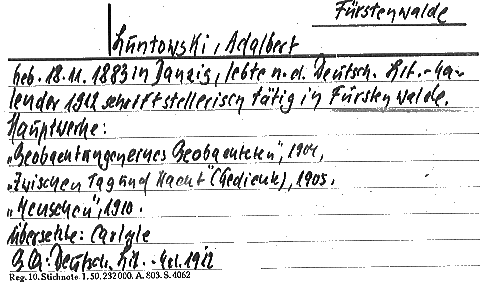 Fürstenwalde
Luntowski, Adalbert
Geb. 18.11.1883 in Danzig, lebte n. d. Deutsch. Lit.-Ka-
lender 1912 schriftstellerisch tätig in Fürstenwalde.
Hauptwerke:
„Beobachtungen eines Beobachteten", 1904,
„Zwischen Tag und Nacht" (Gedichte), 1905.
„Menschen", 1910.
übersetzte: Carlyle
Deutsch. Lit.-Kal. 1912
Reg. 10. Stichnote. 1. 50. 232000. A. 803. S. 4062